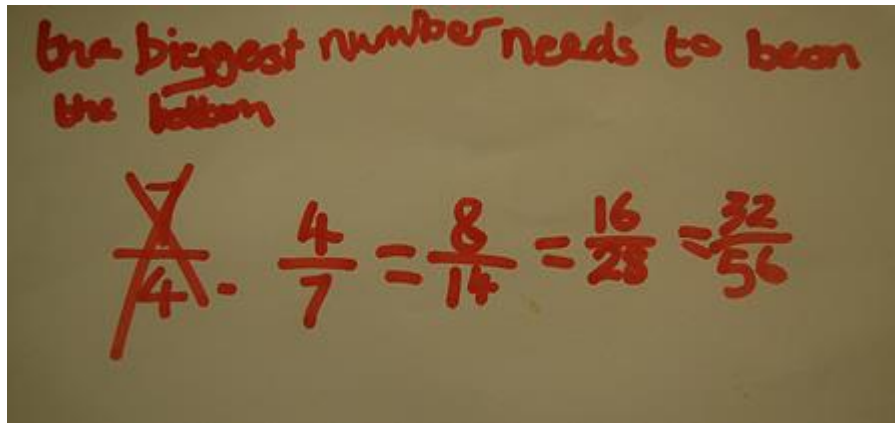 the biggest number needs to be on
the bottom
7/4 - 4/7 = 8/14 = 16/28 = 32/56